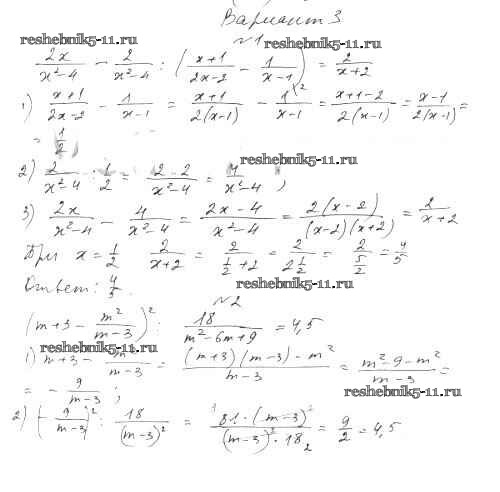 Вариант 3
reshebnik5-11.ru
№1
2x/(x²-4) - 2/(x²-4) : ((x+1)/(2x-2) - 1/(x-1)) = 2/(x+2)
1) (x+1)/(2x-2) - 1/(x-1) = (x+1)/(2(x-1)) - 1\²/(x-1) = (x+1-2)/(2(x-1)) = (x-1)/(2(x-1)) =
= 1/2
reshebnik5-11.ru
2) 2/(x²-4) : 1/2 = (2·2)/(x²-4) = 4/(x²-4) ;
3) 2x/(x²-4) - 4/(x²-4) = (2x-4)/(x²-4) = 2(x-2)/((x-2)(x+2)) = 2/(x+2)
При x = 1/2 2/(x+2) = 2/(1/2+2) = 2/(2 1/2) = 2/(5/2) = 4/5
Ответ: 4/5
reshebnik5-11.ru
№2
(m+3 - m²/(m-3))² : 18/(m²-6m+9) = 4,5
reshebnik5-11.ru
1) m+3 - m²/(m-3) = ((m+3)(m-3)-m²)/(m-3) = (m²-9-m²)/(m-3) =
= - 9/(m-3) ;
reshebnik5-11.ru
2) (-9/(m-3))² : 18/(m-3)² = (81·(m-3)²)/((m-3)²·18) = 9/2 = 4,5